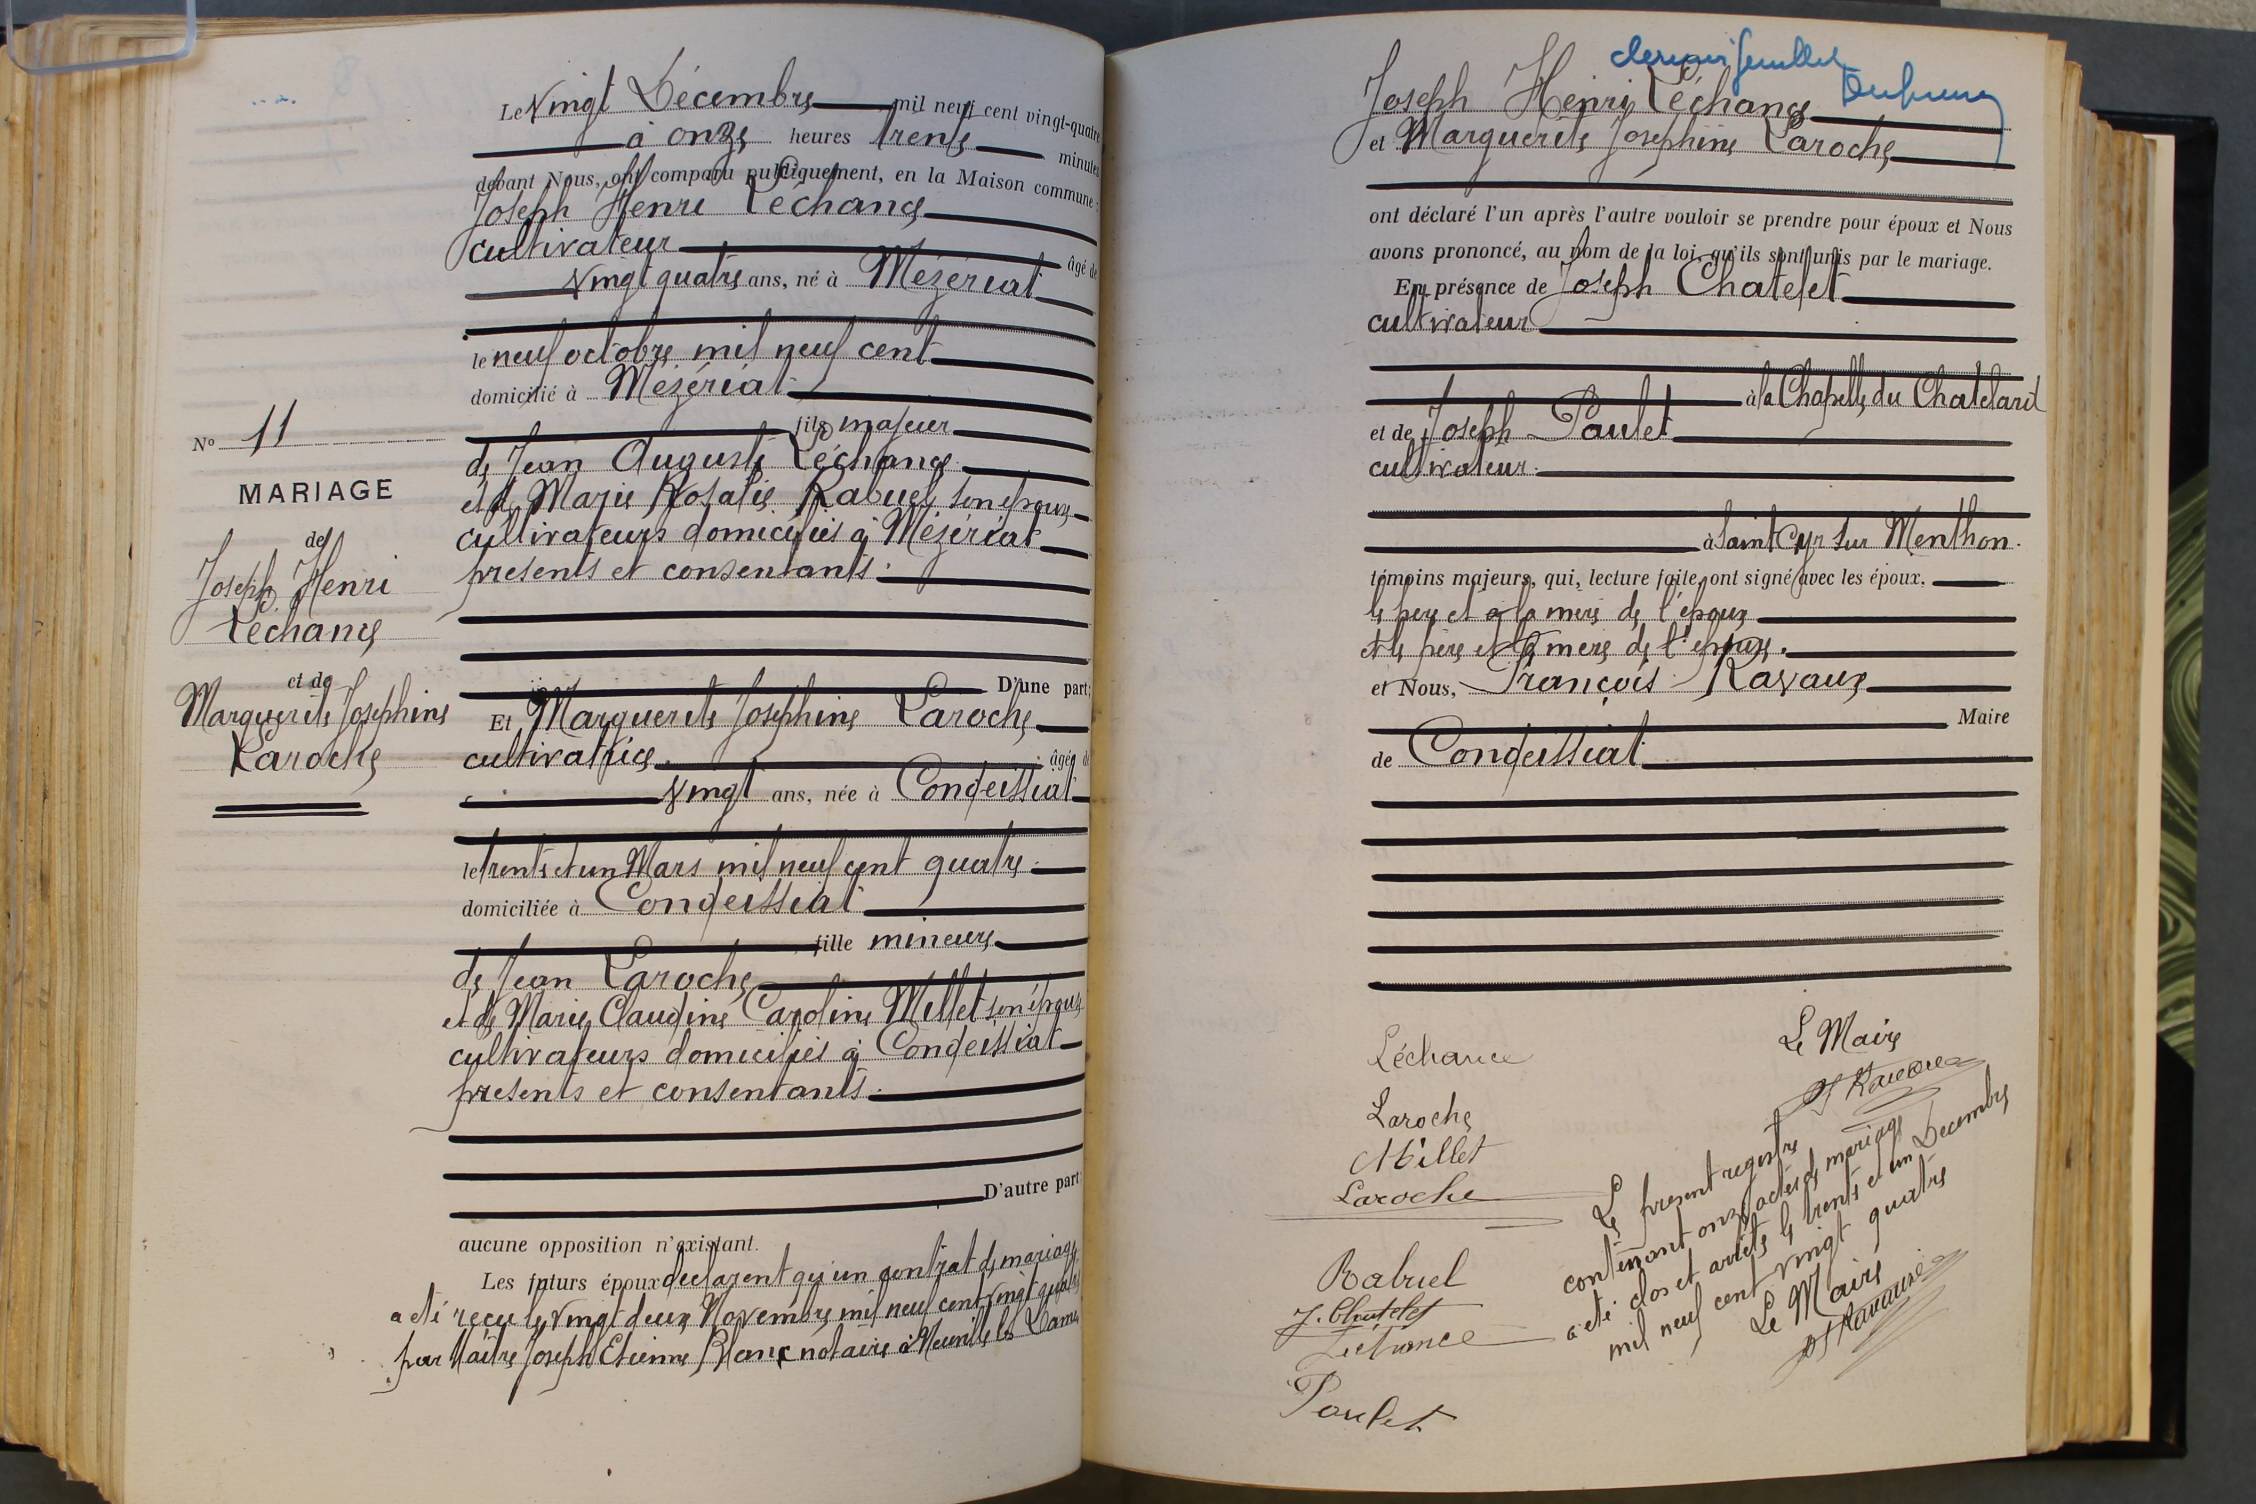 Le Vingt Décembre mil neuf cent vingt-quatre
à onze heures trente minutes
devant Nous, ont comparu publiquement, en la Maison commune :
Joseph Henri Léchance
cultivateur âgé de
Vingt quatre ans, né à Mézériat
le neuf octobre mil neuf cent
domicilié à Mézériat
fils majeur
de Jean Auguste Léchance
et de Marie Rosalie Rabuel son épouse
cultivateurs domiciliés à Mézériat
présents et consentants.
D'une part;
Nº 11
MARIAGE
de
Joseph Henri
Léchance
et de
Marguerite Josephine
Laroche
Et Marguerite Josephine Laroche
cultivatrice. âgée de
Vingt ans, née à Condeissiat
le trente et un Mars mil neuf cent quatre.
domiciliée à Condeissiat
fille mineure
de Jean Laroche
et de Marie Claudine Caroline Millet son épouse
cultivateurs domiciliés à Condeissiat
présents et consentants.
D'autre part;
aucune opposition n'existant.
Les futurs époux déclarent qu'un contrat de mariage
a été reçu le Vingt deux Novembre mil neuf cent vingt quatre
par Maître Joseph Etienne Blanc notaire à Neuville les Dames
dernier feuillet
Joseph Henri Léchance
et Marguerite Josephine Laroche
ont déclaré l'un après l'autre vouloir se prendre pour époux et Nous
avons prononcé, au nom de la loi, qu'ils sont unis par le mariage.
En présence de Joseph Chatelet
cultivateur
à la Chapelle du Chatelard
et de Joseph Paulet
cultivateur.
à Saint Cyr sur Menthon.
témoins majeurs, qui, lecture faite, ont signé avec les époux,
le père et la mère de l'époux
et le père et la mère de l'épouse.
et Nous, François Ravaux
Maire
de Condeissiat
Léchance
Laroche
Millet
Laroche
Rabuel
J. Chatelet
Léchance
Poulet
Le Maire
Le présent registre
contenant onze actes de mariage
a été clos et arrêté le trente et un Décembre
mil neuf cent vingt quatre
Le Maire